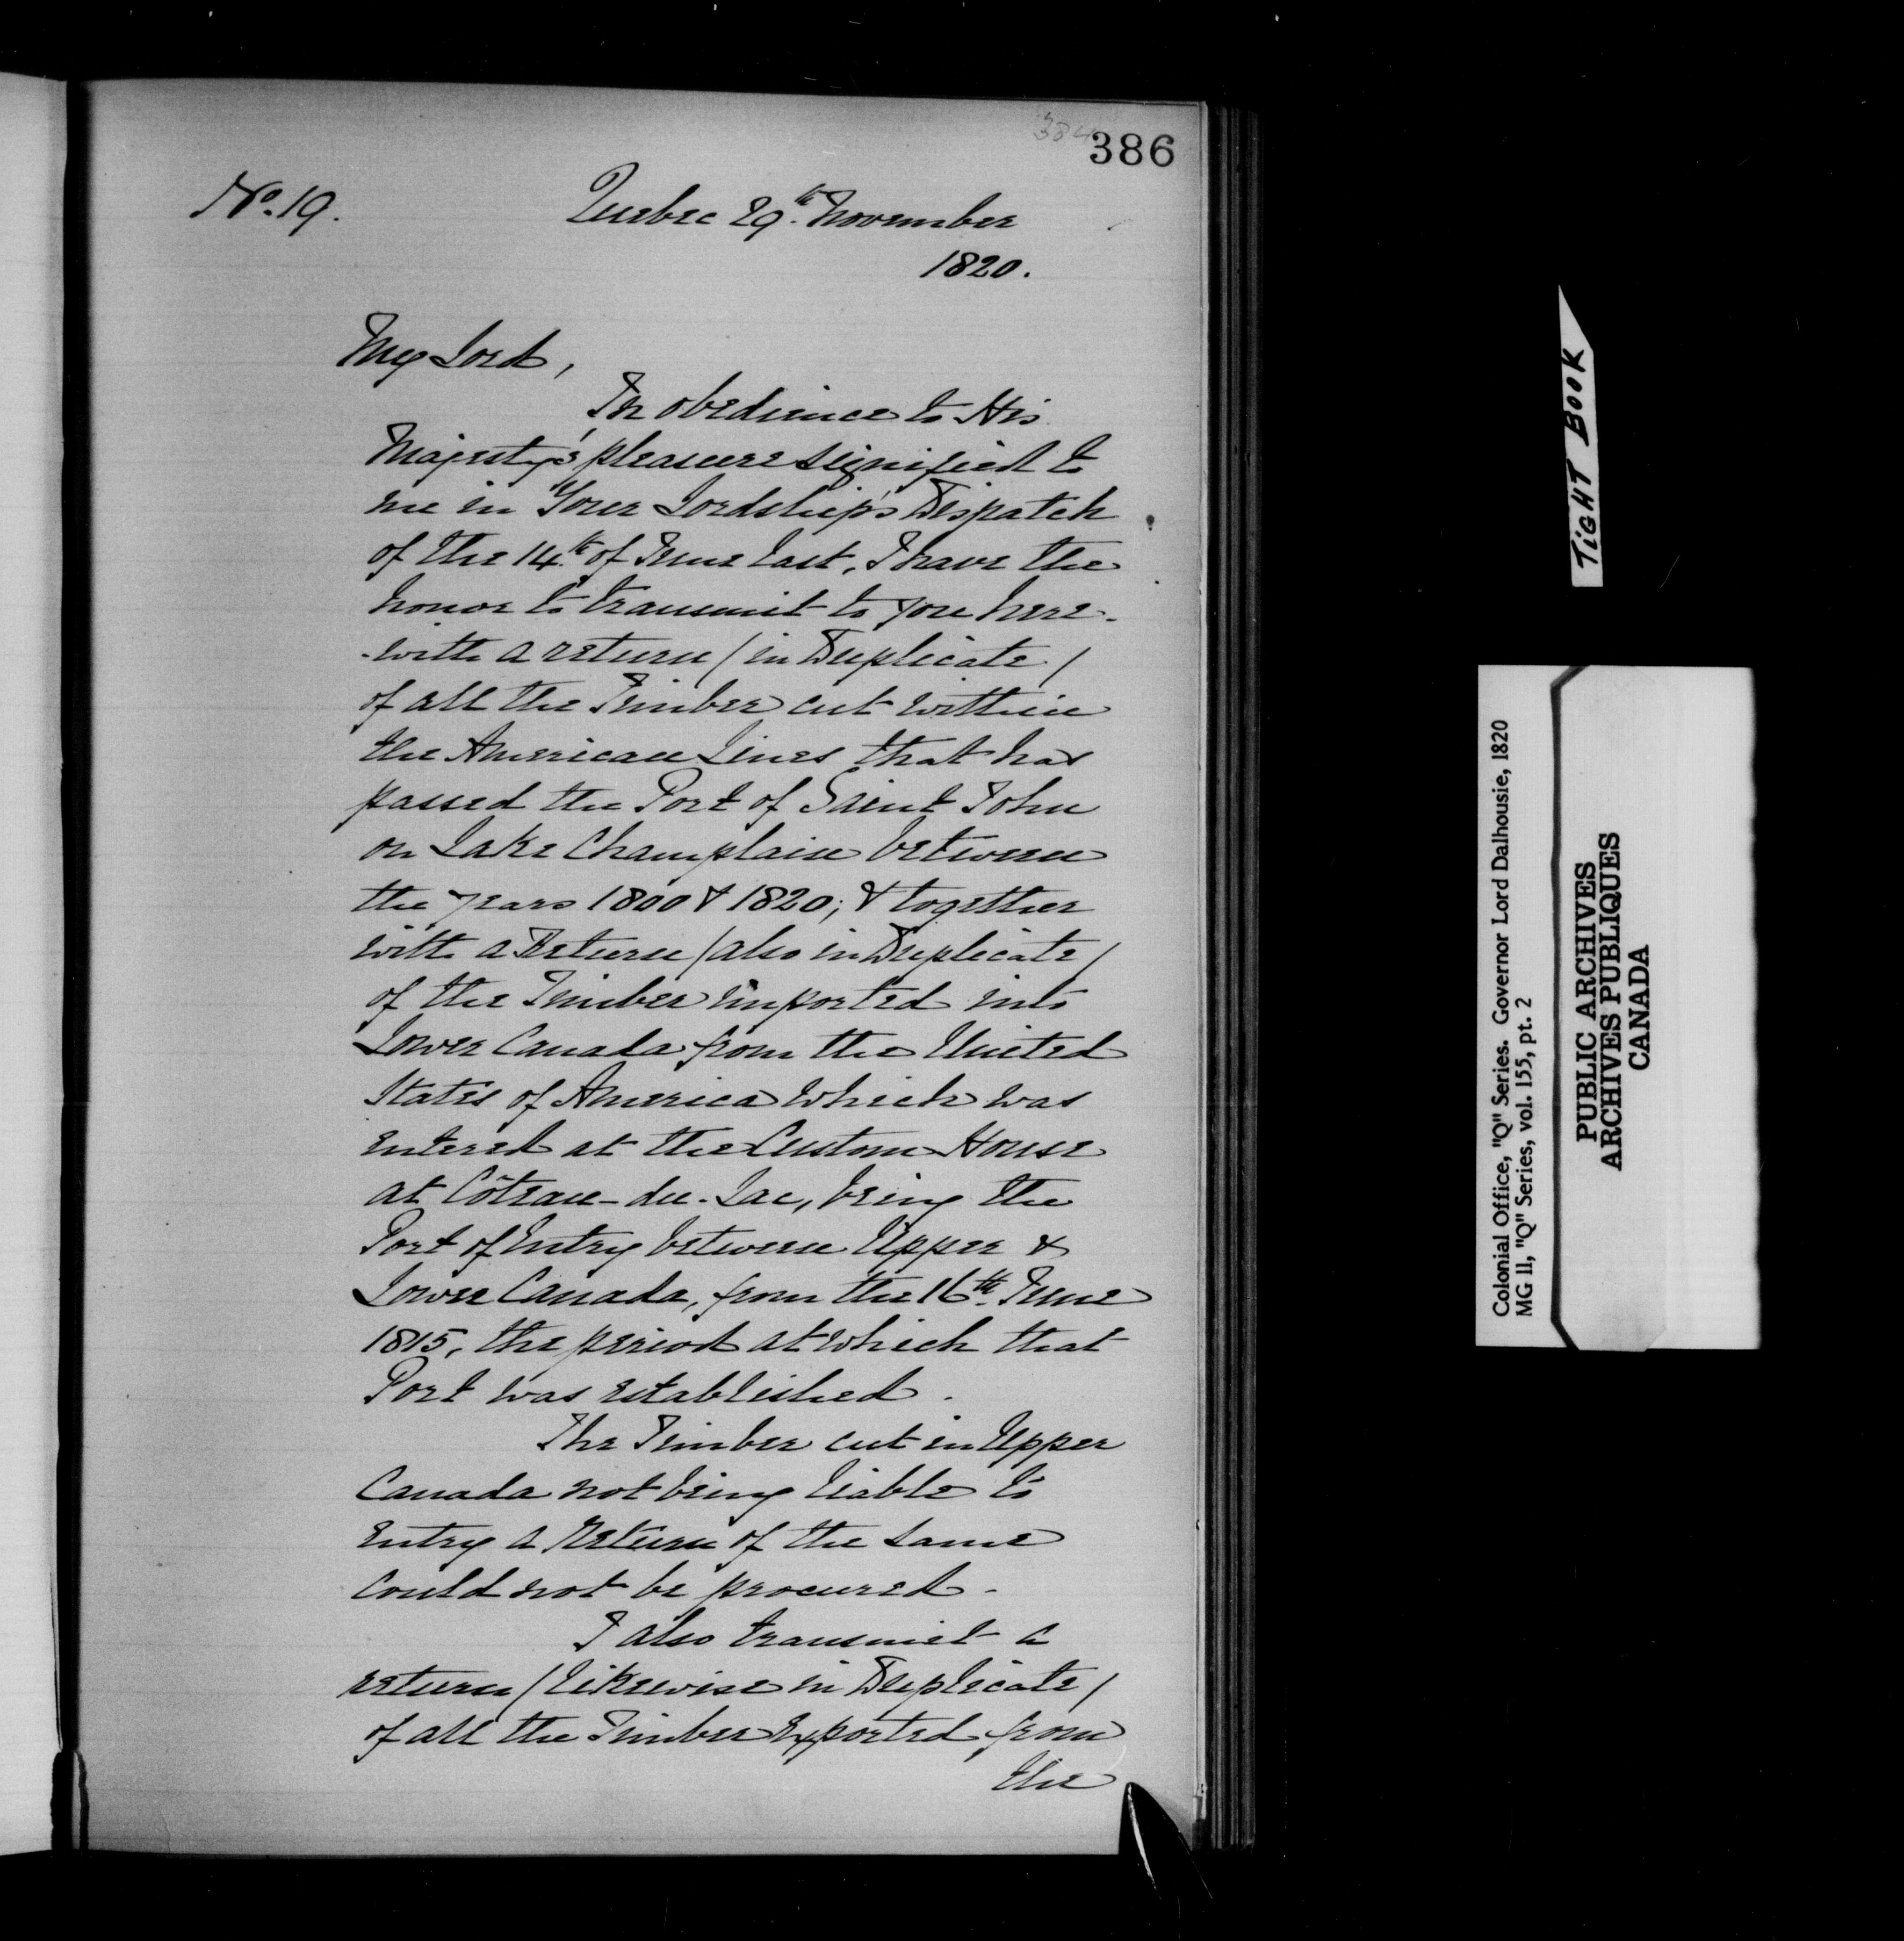 384
386
No. 19.
Quebec 29th. November
1820.
My Lord,
In obedience to His
Majesty's pleasure signified to
me in Your Lordship's Dispatch
of the 14th. of June last, I have the
honor to transmit to you here-
-with a return / in Duplicate /
of all the Timber cut within
the American Lines that has
passed the Port of Saint John
on Lake Champlain between
the years 1800 & 1820; & together
with a Return / also in Duplicate /
of the Timber imported into
Lower Canada from the United
States of America which was
entered at the Custom House
at Côteau-du-Lac, being the
Port of Entry between Upper &
Lower Canada, from the 16th. June
1815, the period at which that
Port was established.
The Timber cut in Upper
Canada not being liable to
Entry a Return of the same
could not be procured.
I also transmit a
return / likewise in Duplicate /
of all the Timber Exported from
the
TIGHT BOOK
Colonial Office, "Q" Series. Governor Lord Dalhousie, 1820
MG 11, "Q" Series, vol. 155, pt. 2
PUBLIC ARCHIVES
ARCHIVES PUBLIQUES
CANADA